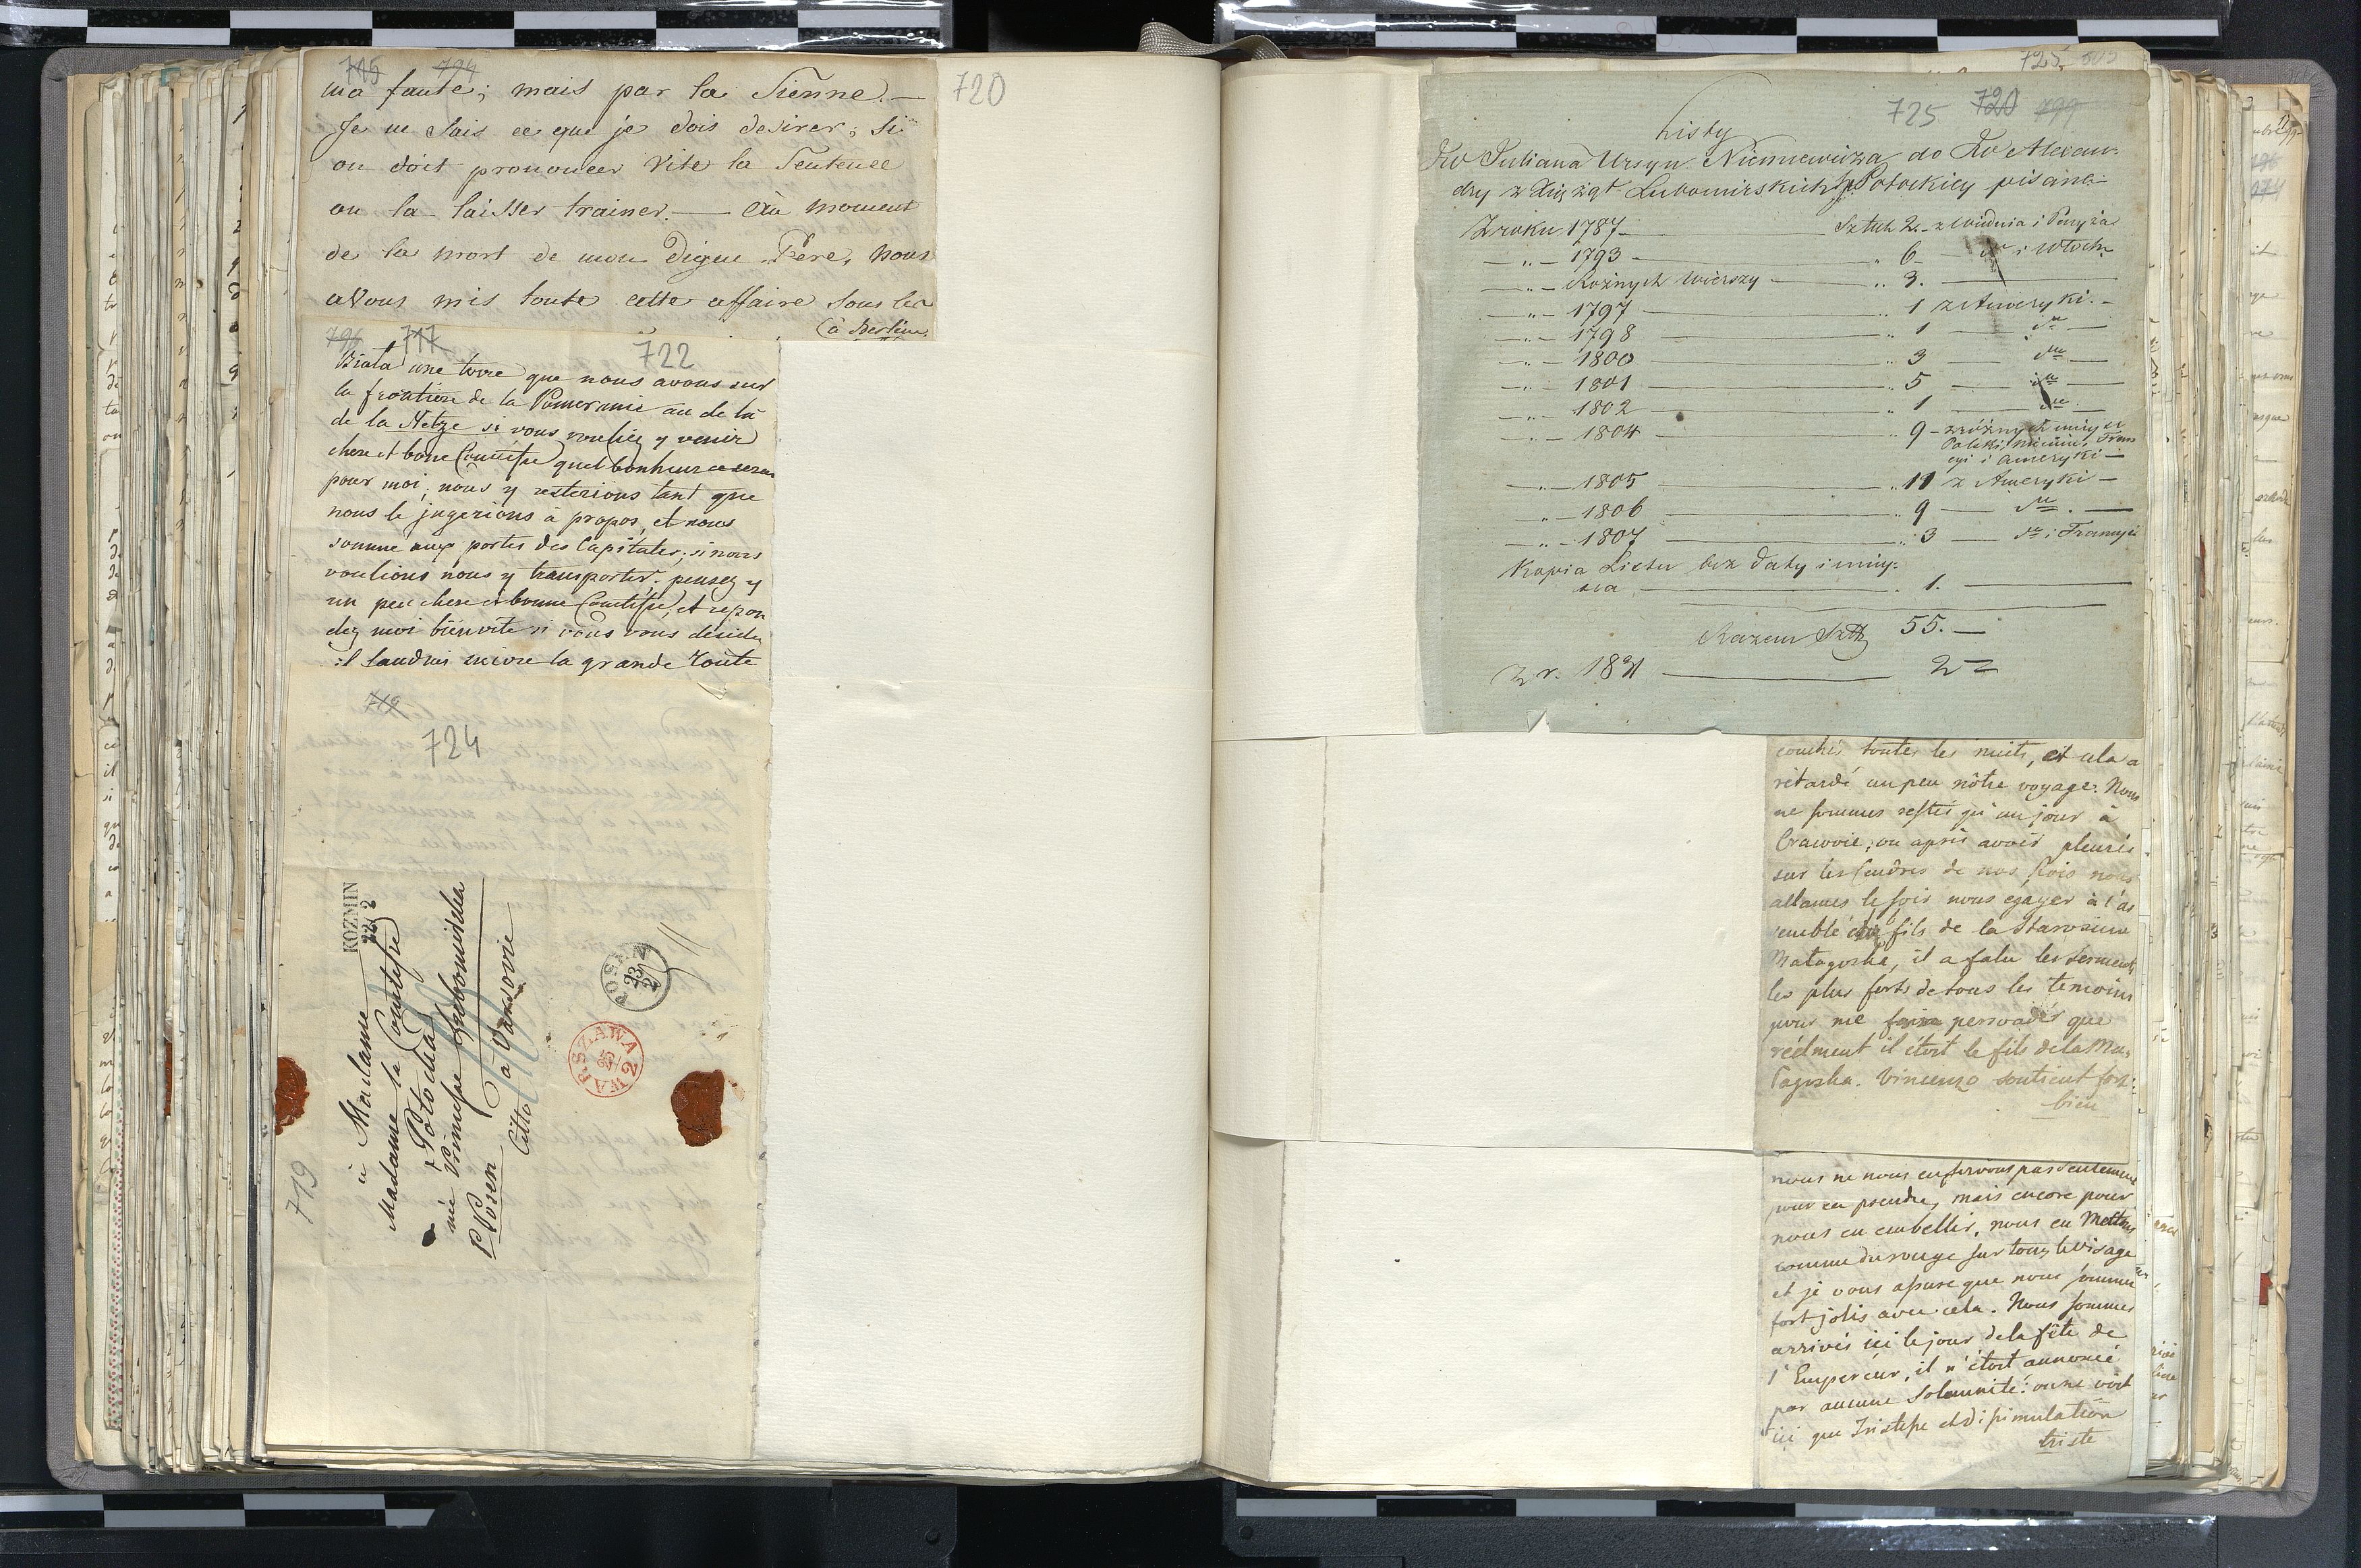 715 794
ma faute; mais par la Sienne. —
Je ne sais ce que je dois desirer; si
on doit prononcer vite la Sentence
ou la laisser trainer. — Au moment
de la mort de mon digne Père, nous
avons mis toute cette affaire sous la
(à Berlin
720
796 717
722
Biała une terre que nous avons sur
la frontière de la Pomeranie au de là
de la Netze si vous vouliez y venir
chere et bonne Comtesse quel bonheur ce serait
pour moi, nous y resterions tant que
nous le jugerions à propos, et nous
somme aux portes des Capitales, si nous
voulions nous y transporter. pensez y
un peu chere et bonne Comtesse, et repon
dez moi bien vite si vous vous décidez
il faudrai suivre la grande route
719
724
KOZMIN
22 2
à Madame
Madame la Comtesse
Potocka
née Princesse Lubomirska
p Posen à Varsovie
Cito
POSEN
23 2
WARSZAWA
25 2
719
725 502
725 720 799
Listy
JW Juliana Ursyn Niemcewicza do JW Alexan-
dry z Xiążąt Lubomirskich Potockiey pisane
Z roku 1787 — Sztuk 2. — z Widnia i Paryża
— " — 1793 — " 6 — i Włoch
— " — Rożnych Wierszy — " 3. —
— " — 1797 — " 1 z Ameryki. —
— " — 1798 — " 1 — do —
— " — 1800 — " 3 — do —
— " — 1801 — " 5 — do —
— " — 1802 — " 1 — do —
— " — 1804 — 9 — z różnych mieysc
Polski, Niemiec, Fran
cyi i Ameryki —
— " — 1805 — " 11 z Ameryki —
— " — 1806 — " 9 — do . —
— " — 1807 — " 3 — do i Francyi
Kopia Listu bez daty i miey-
sca — . 1. —
Razem Sztk 55. —
Z r. 1831 — 2 —
couché toutes les nuits, et cela a
retardé un peu nôtre voyage. Nous
ne sommes restés qu'un jour à
Cracovie; ou après avoir pleurés
sur les Cendres de nos Rois nous
allames le soir nous egayer à l'as
semblé du fils de la Starosine
Małagoska, il a falu les serments
les plus forts de tous les temoins
pour me faire persuadés que
réelment il étoit le fils de la Ma-
lagoska. Vincenzo soutient fort
bien
nous ne nous en servons pas seulement
pour en prendre, mais encore pour
nous en embellir, nous en Mettons
comme du rouge sur tous le visage
et je vous assure que nous sommes
fort jolis avec cela. Nous sommes
arrivés ici le jour de la fête de
l'Empereur, il n'étoit annoncé
par aucune solemnité: on ne voit
ici que Tristesse et dissimulation
triste